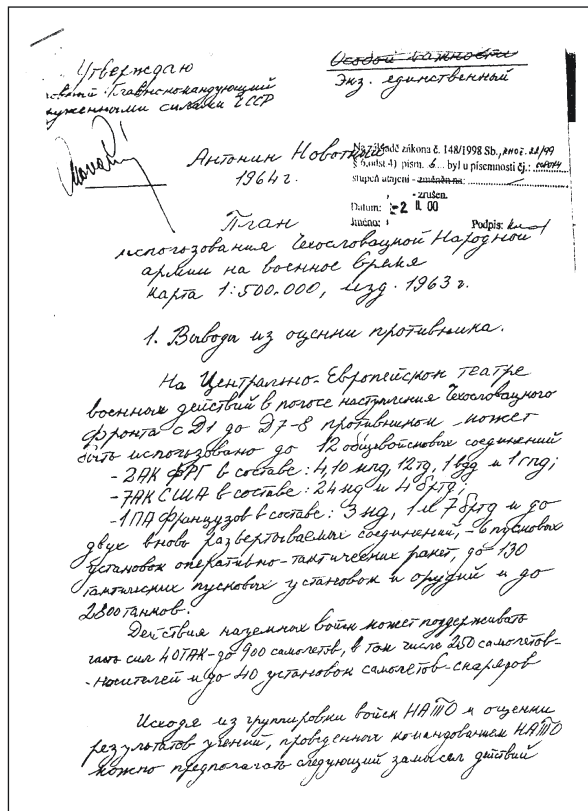 Утверждаю
Главнокомандующий
вооруженными силами ЧССР
Особой важности
Экз. единственный
Антонин Новотный
1964 г.
Na základě zákona č. 148/1998 Sb.,
byl u písemnosti čj.:
stupeň utajení - změněn na:
- zrušen.
Datum: -2 II. 00
Jméno: Podpis:
План
использования Чехословацкой Народной
армии на военное время
карта 1:500.000, изд. 1963 г.
1. Выводы из оценки противника.
На Центрально-Европейском театре
военных действий в полосе наступления Чехословацкого
фронта с Д1 до Д7-8 противником может
быть использовано до 12 общевойсковых соединений
- 2АК ФРГ в составе: 4,10 мпд, 12тд, 1 вдд и 1 гпд;
- 7АК США в составе: 24 мд и 4 бртд;
- 1ПА Французов в составе: 3 мд, 1 и 7 бртд и до
двух вновь развертываемых соединений, - 6 пусковых
установок оперативно-тактических ракет, до 130
тактических пусковых установок и орудий и до
2800 танков.
Действия наземных войск может поддерживать
часть сил 4 ОТАК - до 900 самолетов, в том числе 250 самолетов-
-носителей и до 40 установок самолетов-снарядов
Исходя из группировки войск НАТО и оценки
результатов учений, проведенных командованием НАТО
можно предполагать следующий замысел действий